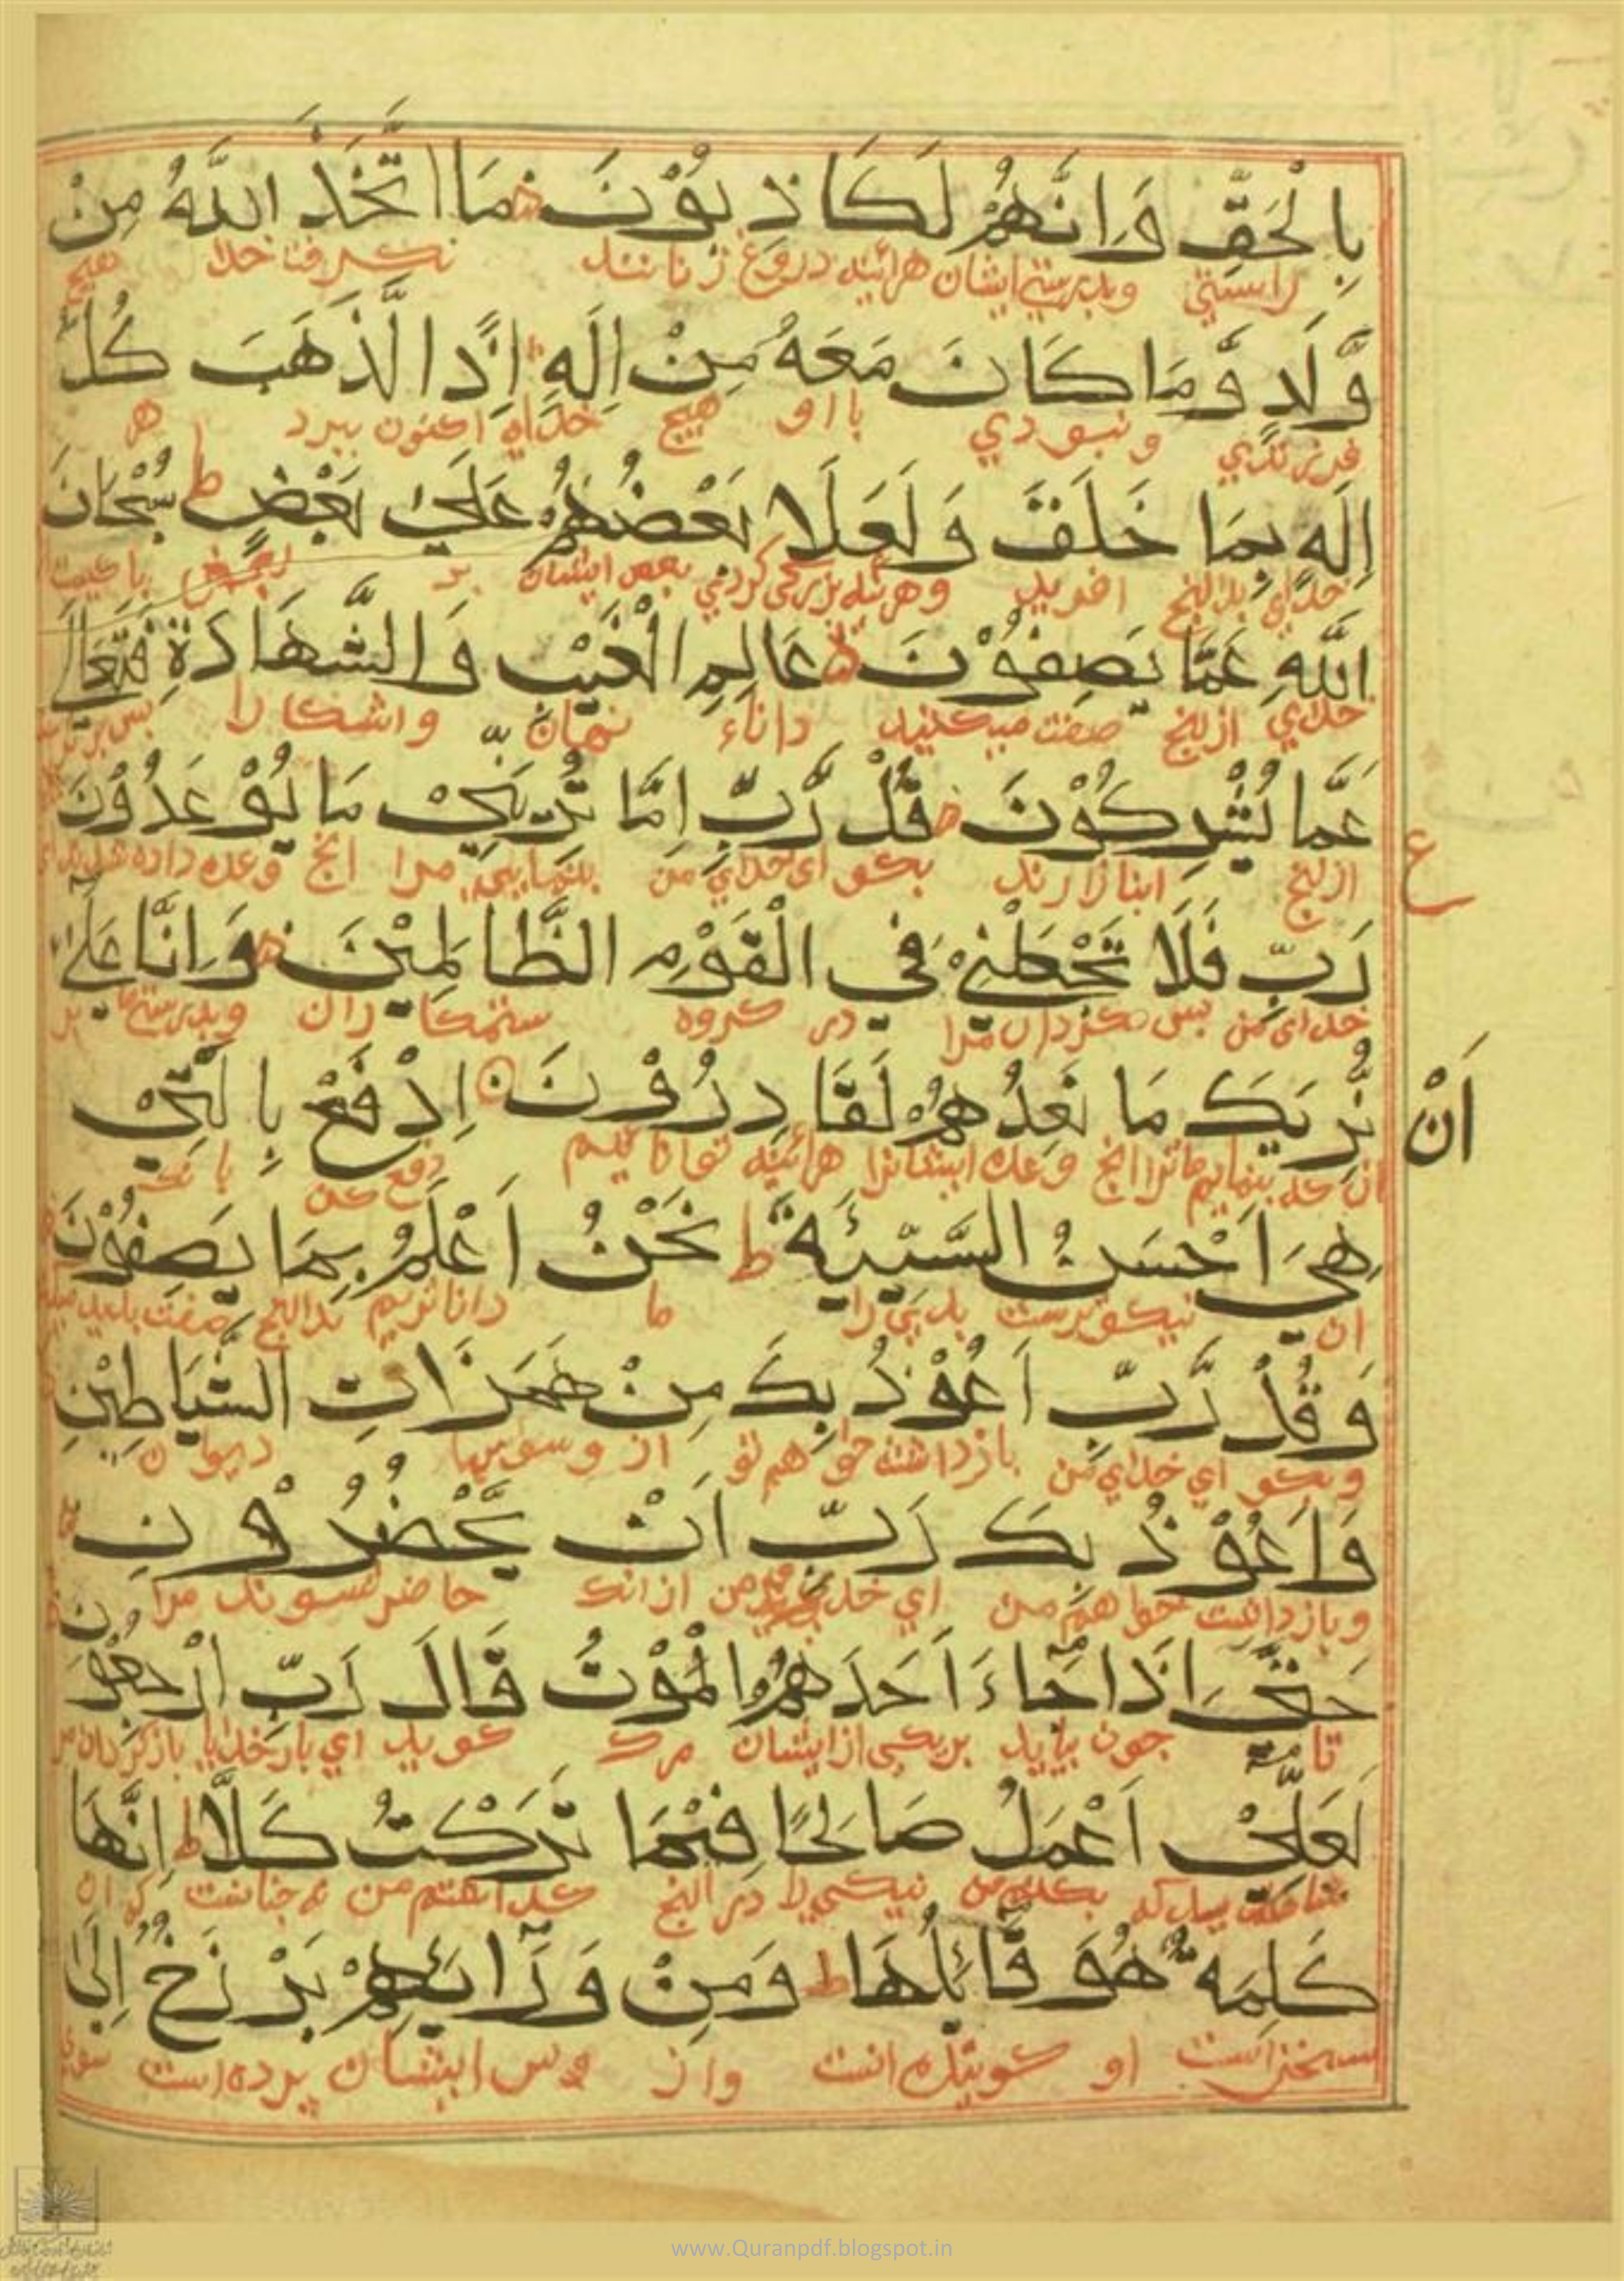 بِالْحَقِّ وَاِنَّهُمْ لَكَاذِبُوْنَ مَا اتَّخَذَ اللّٰهُ مِنْ
راستي وبدرستي ايشان هرائينه دروغ زنانند نكرفت خدا هيچ
وَّلَدٍ وَّمَا كَانَ مَعَهُ مِنْ اِلَهٍ اِذًا الَّذَهَبَ كُلُّ
فرزندي ونبودي بااو هيچ خداي اكنون ببرد هر
اِلَهٍ بِمَا خَلَقَ وَلَعَلَا بَعْضُهُمْ عَلَى بَعْضٍ ط سُبْحَانَ
خداي بدانچ افريد بعض ايشان بر بعض
اللّٰهِ عَمَّا يَصِفُوْنَ لا عَالِمِ الْغَيْبِ وَالشَّهَادَةِ فَتَعَالَى
خداي ازانچ صفت ميكنند داناء نهان واشكارا
عَمَّا يُشْرِكُوْنَ قُلْ رَّبِّ اِمَّا تُرِيَنِّيْ مَا يُوْعَدُوْنَ
ازانچ انبازارند بكو اي خداي من بنمايي مرا انچ وعده داده
ع
رَبِّ فَلَا تَجْعَلْنِيْ فِي الْقَوْمِ الظَّالِمِيْنَ وَاِنَّا عَلَى
خداي من پس مكردان مرا در كروه ستمكاران وبدرستي ما بر
اَنْ نُّرِيَكَ مَا نَعِدُهُمْ لَقَادِرُوْنَ اِدْفَعْ بِالَّتِيْ
انكه بنمايم ترا انچ وعده ايشانرا هرائينه توانائيم دفع كن
هِيَ اَحْسَنُ السَّيِّئَةَ ط نَحْنُ اَعْلَمُ بِمَا يَصِفُوْنَ
ان نيكوترست بدي را ما داناتريم بدانچ صفت
وَقُلْ رَّبِّ اَعُوْذُ بِكَ مِنْ هَمَزَاتِ الشَّيَاطِيْنِ
وبكو اي خداي من بازداشت خواهم تو از وسوسها ديوان
وَاَعُوْذُ بِكَ رَبِّ اَنْ يَّحْضُرُوْنِ
وبازداشت خواهم من اي خداي من ازانك حاضر شوند مرا
حَتَّى اِذَا جَاءَ اَحَدَهُمُ الْمَوْتُ قَالَ رَبِّ ارْجِعُوْنِ
تا چون بيايد بريكي ازايشان مرك كويد اي بارخدايا بازكردان
لَعَلِّيْ اَعْمَلُ صَالِحًا فِيْمَا تَرَكْتُ كَلَّا ط اِنَّهَا
نيكي را درانچ من نه چنانست ان
كَلِمَةٌ هُوَ قَائِلُهَا ط وَمِنْ وَرَائِهِمْ بَرْزَخٌ اِلَى
سخن است او كوينده انست واز پس ايشان پرده است
www.Quranpdf.blogspot.in